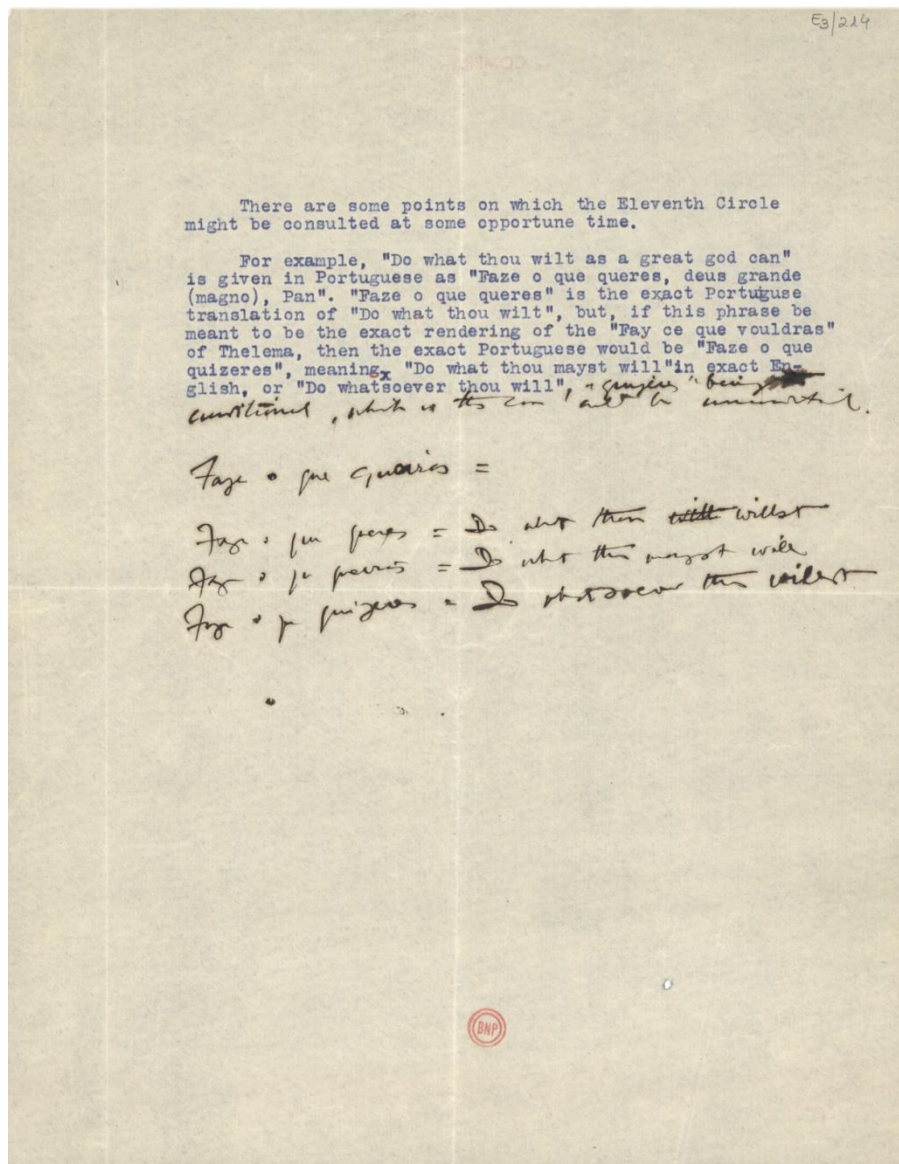 E3/214
There are some points on which the Eleventh Circle
might be consulted at some opportune time.
For example, "Do what thou wilt as a great god can"
is given in Portuguese as "Faze o que queres, deus grande
(magno), Pan". "Faze o que queres" is the exact Portuguse
translation of "Do what thou wilt", but, if this phrase be
meant to be the exact rendering of the "Fay ce que vouldras"
of Thelema, then the exact Portuguese would be "Faze o que
quizeres", meaning "Do what thou mayst will"in exact En-
glish, or "Do whatsoever thou will", "quizeres" being
conditional, which is the
Faze o que queiras =
Faze o que queres = Do what thou willst
Faze o que queiras = Do what thou mayst will
Faze o que quizeres = Do whatsoever thou willst
BNP